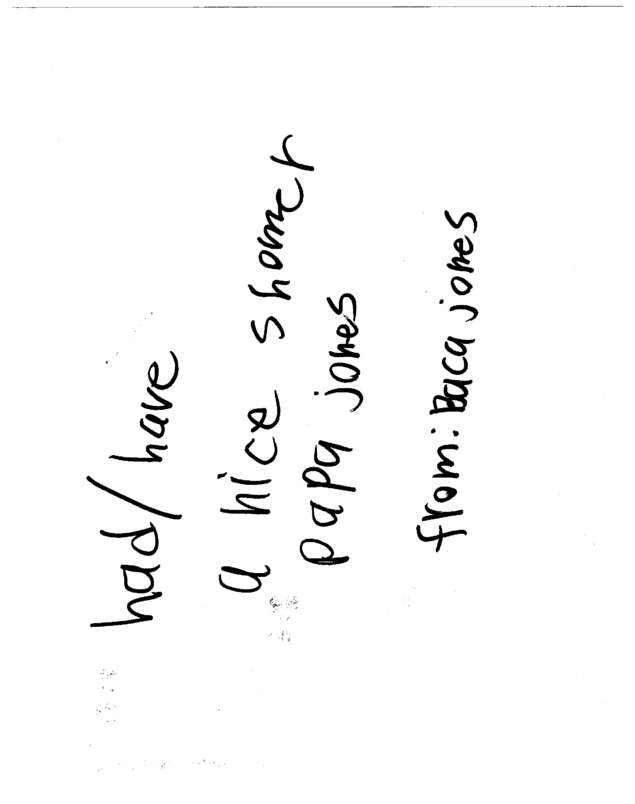 had/have
a nice shomer
papa jones
from: Baca jones